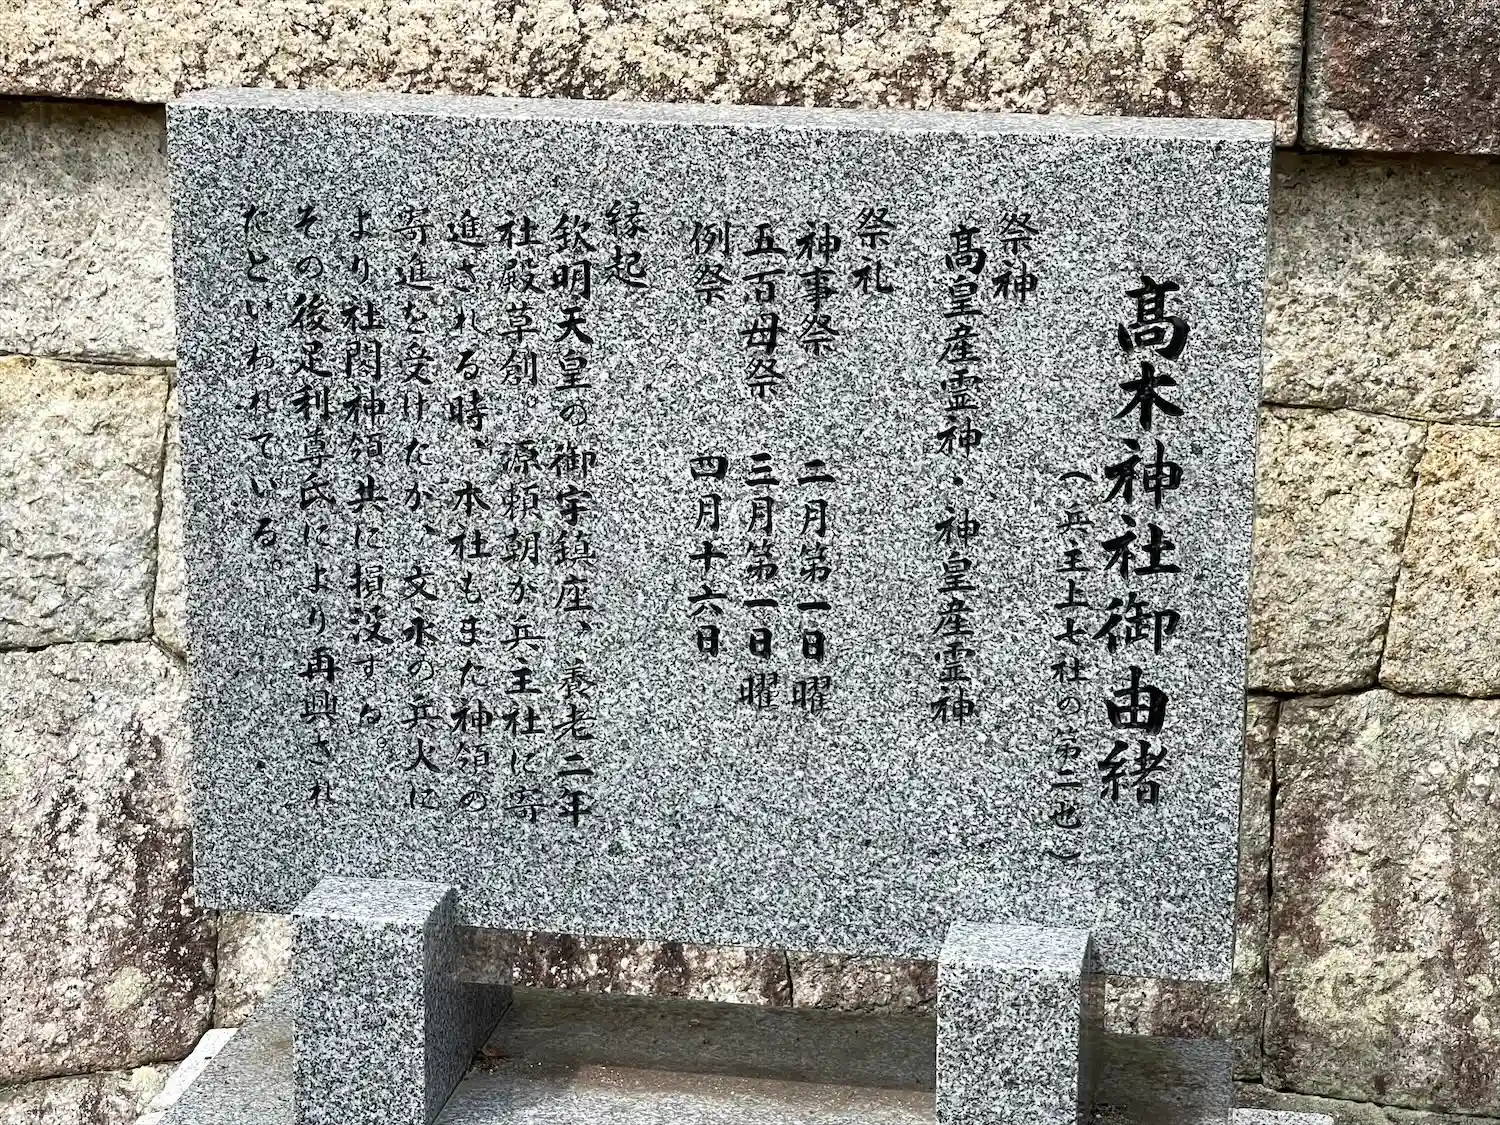 髙木神社御由緒
（兵主上七社の第二也）
祭神
髙皇産霊神・神皇産霊神
祭礼
神事祭　二月第一日曜
五百母祭　三月第一日曜
例祭　四月十六日
縁起
欽明天皇の御宇鎮座、養老二年
社殿草創。源頼朝が兵主社に寄
進される時、本社もまた神領の
寄進を受けたが、文永の兵火に
より社閣神領共に損没する。
その後足利尊氏により再興され
たといわれている。